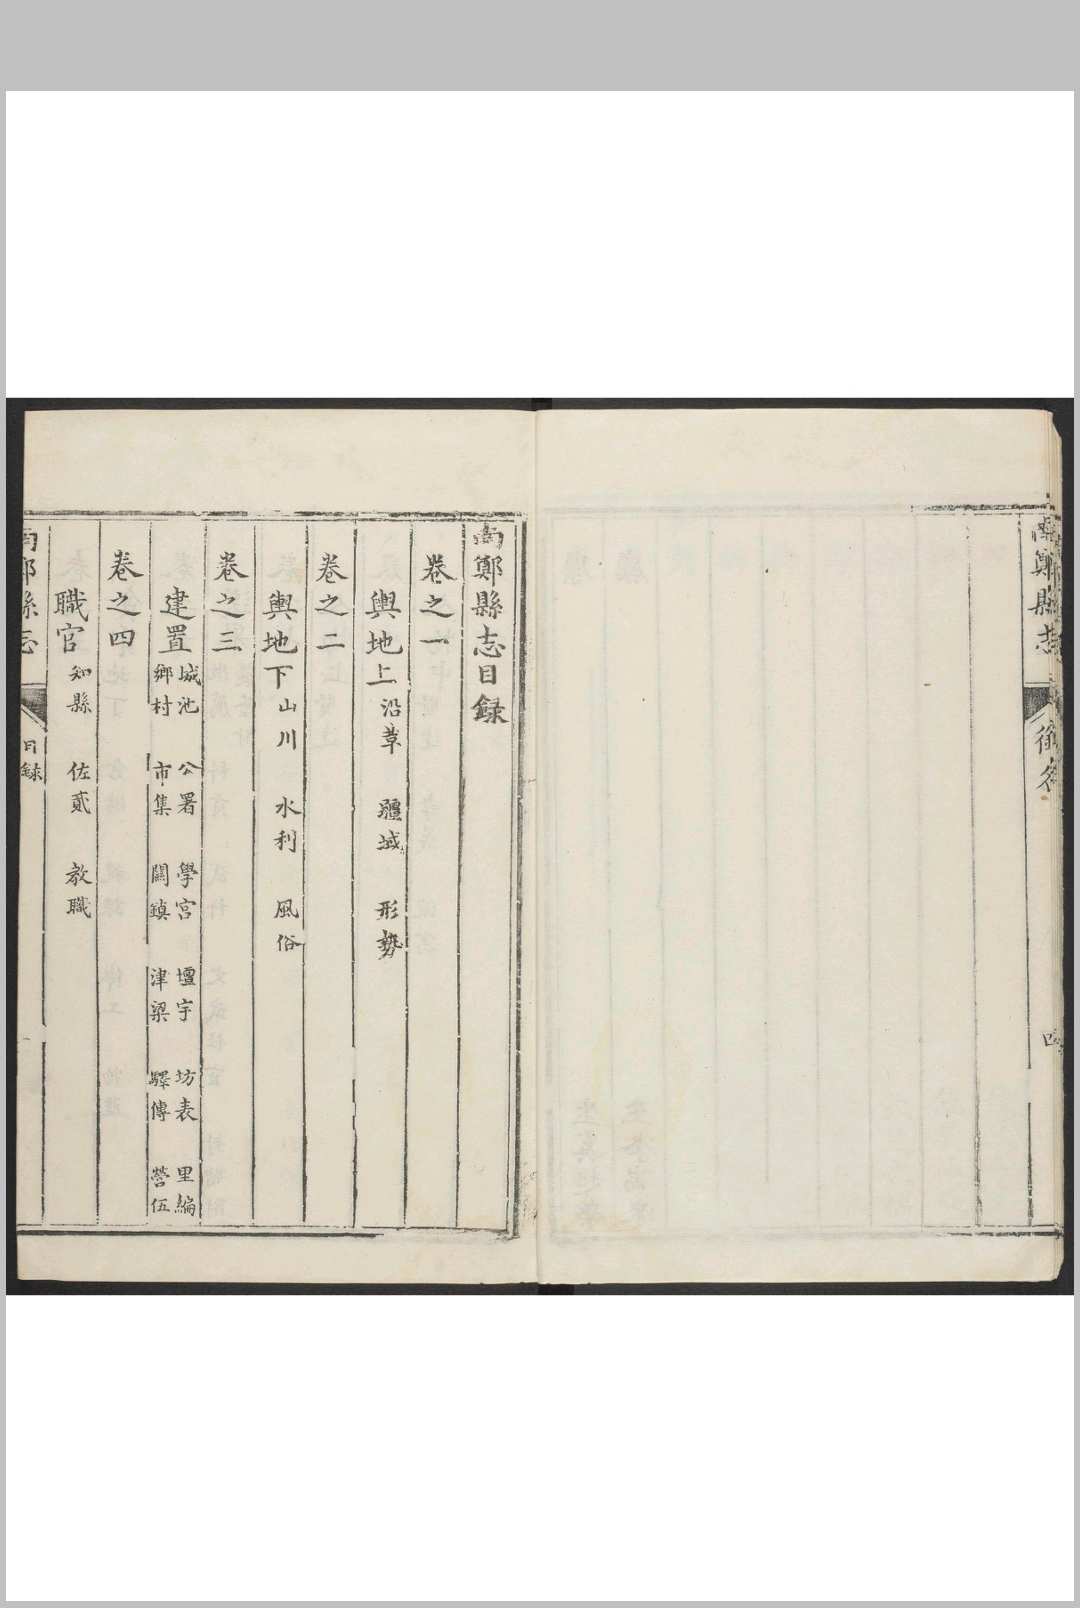 南鄭縣志
銜名
四
南鄭縣志目録
卷之一
輿地上 沿革 疆域 形勢
卷之二
輿地下 山川 水利 風俗
卷之三
建置 城池 公署 學宮 壇宇 坊表 里編
鄉村 市集 關鎮 津梁 驛傳 營伍
卷之四
職官 知縣 佐貳 教職
南鄭縣志
目録